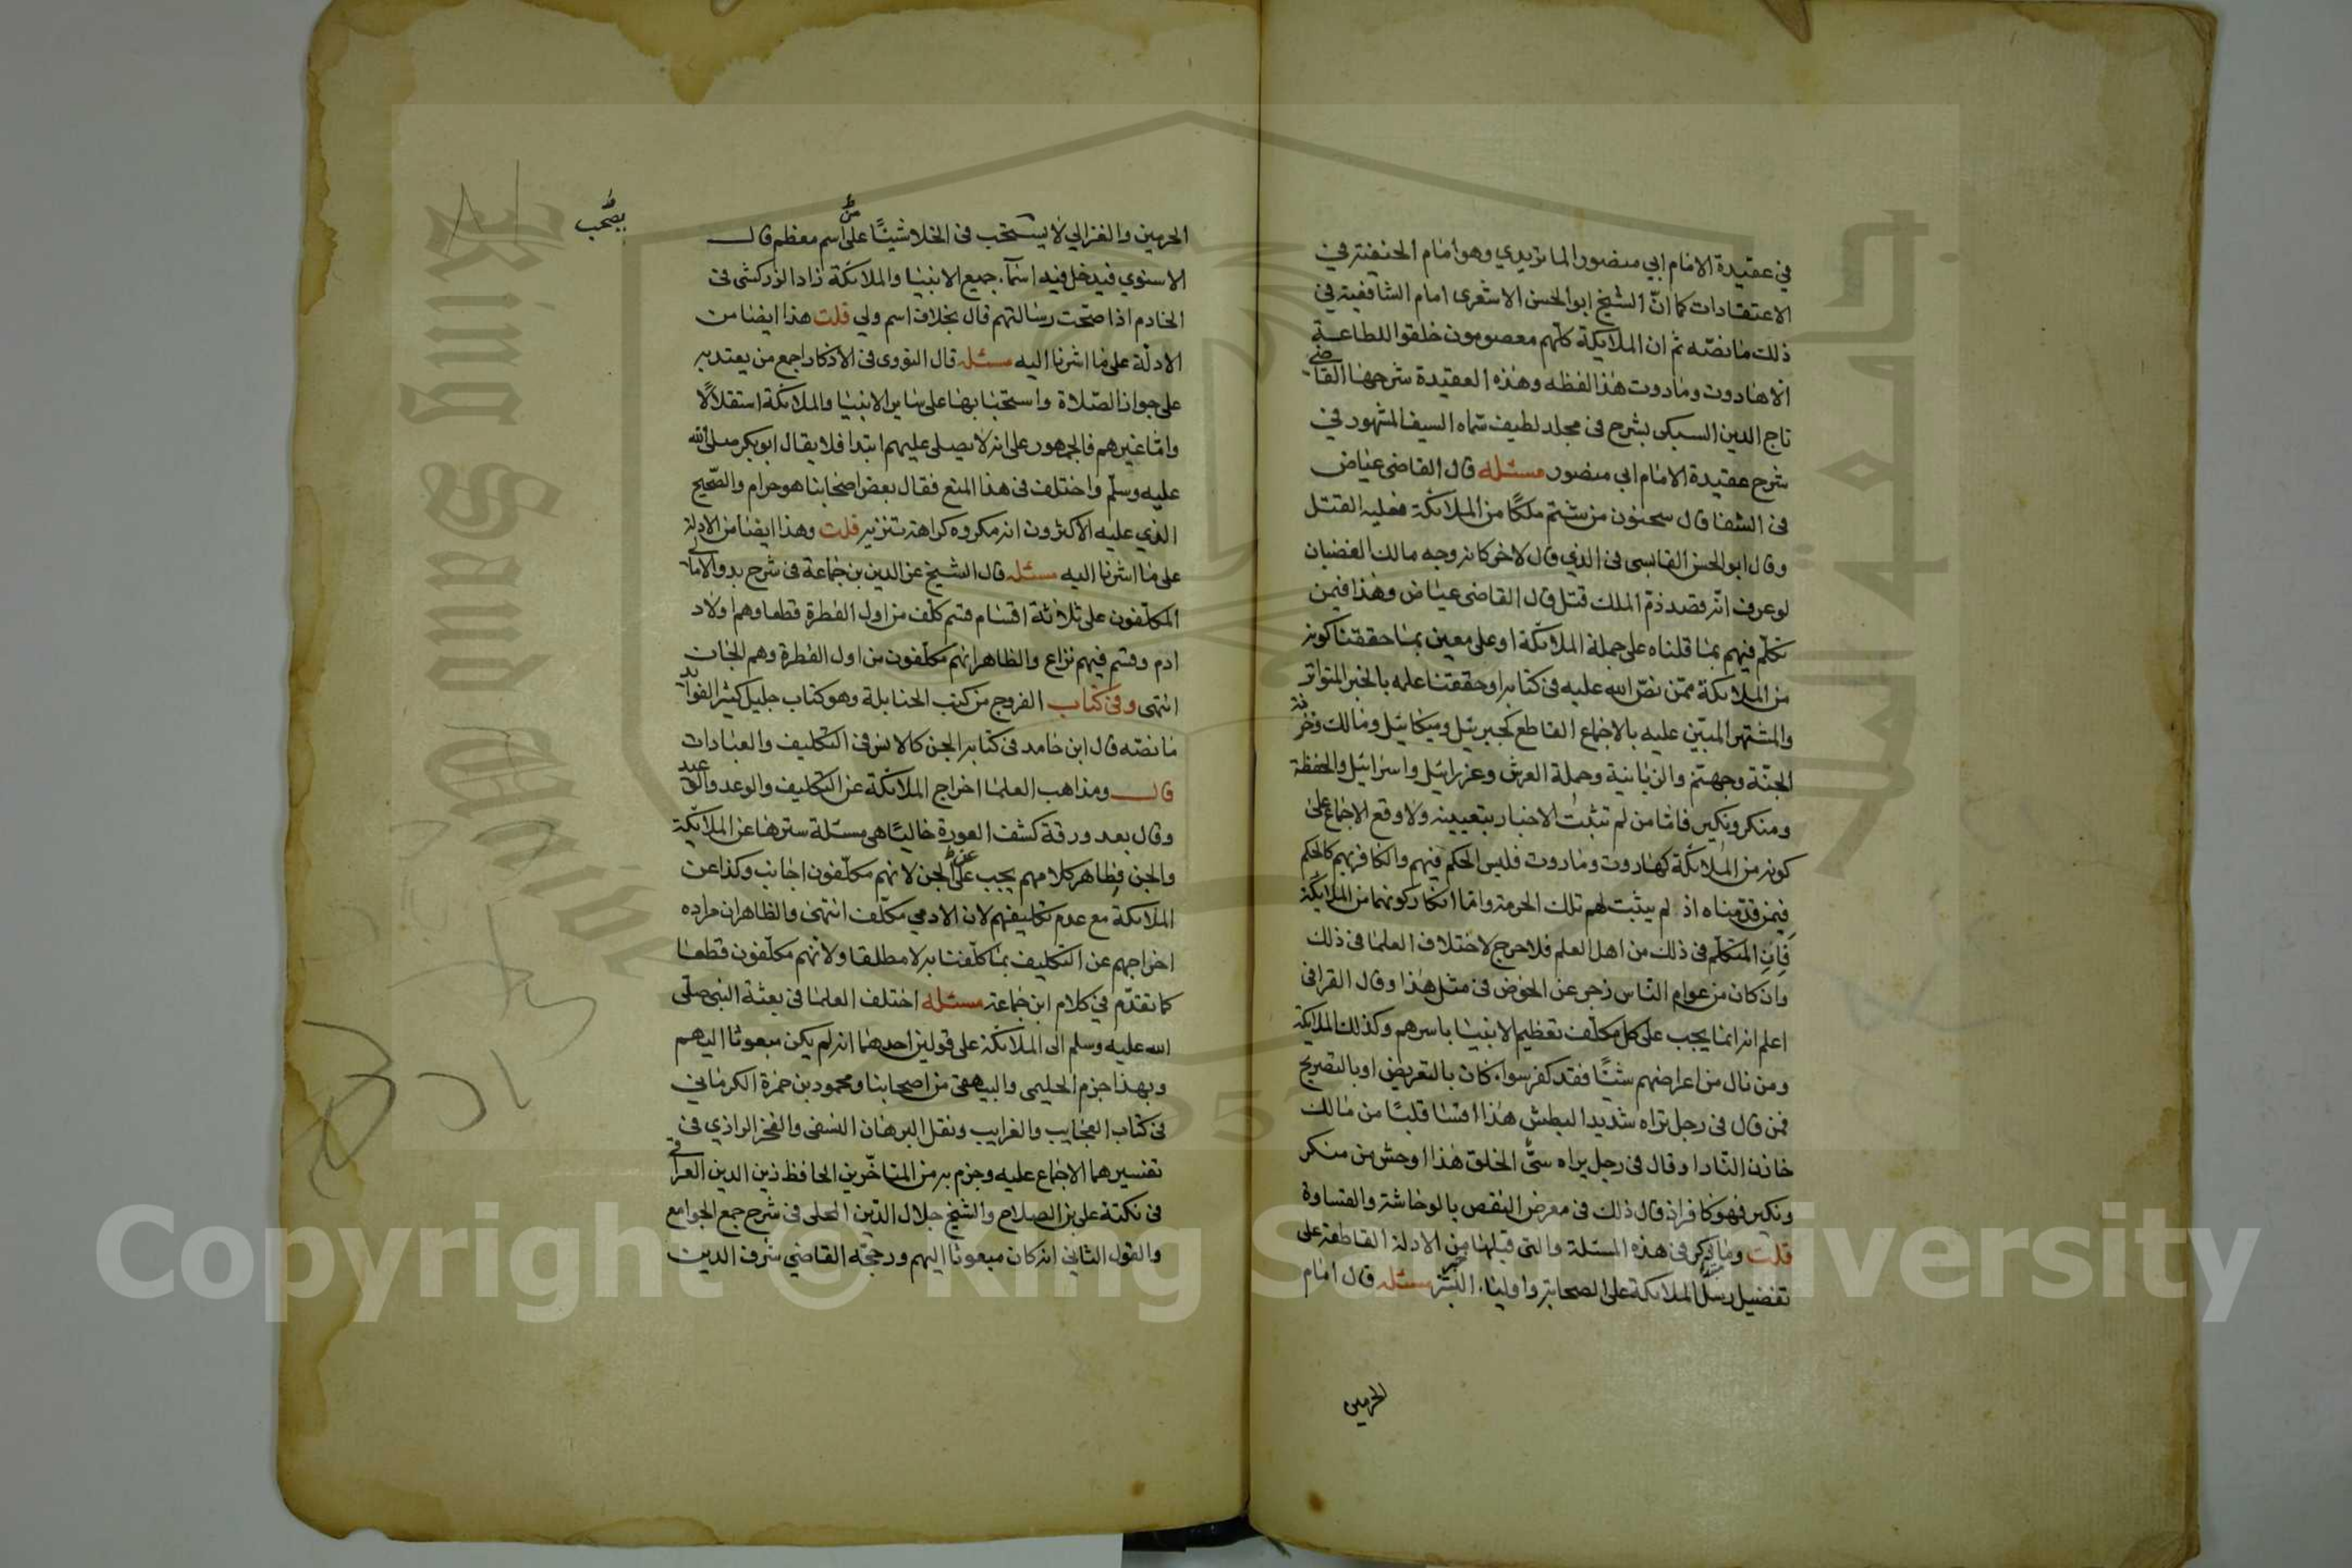 في عقيدة الامام ابي منصور الماتريدي وهو امام الحنفية في
الاعتقادات كما انّ الشيخ ابو الحسن الاشعرى امام الشافعية في
ذلك ما نصّه ثم ان الملايكة كلهم معصومون خلقوا للطاعة
الا هاروت وماروت هذا لفظه وهذه العقيدة شرحها القاضي
تاج الدين السبكى بشرح فى مجلد لطيف سماه السيف المشهور في
شرح عقيدة الامام ابي منصور مسئله قال القاضى عياض
فى الشفا قال سحنون من شتم ملكًا من الملائكة فعليه القتل
وقال ابو الحسن القابسى فى الذي قال لاخر كانه وجه مالك الغضبان
لو عرف انّه قصد ذمّ الملك قتل قال القاضى عياض وهذا فيمن
تكلّم فيهم بما قلناه على جملة الملائكة او على معين بما حققنا كونه
من الملائكة ممّن نصّ الله عليه فى كتابه او حققنا علمه بالخبر المتواتر
والمشتهر المبيّن عليه بالاجماع القاطع كجبريئل وميكائيل ومالك وخزنة
الجنّة وجهنم والزبانية وحملة العرش وعزرائيل واسرافيل والحفظة
ومنكر ونكير فاما من لم تثبت الاخبار بتعيينه ولا وقع الاجماع على
كونه من الملائكة كهاروت وماروت فليس الحكم فيهم والكافر بهم كالحكم
فيمن قدّمناه اذ لم يثبت لهم تلك الحرمة وامّا انكار كونهما من الملايكة
فان المتكلّم فى ذلك من اهل العلم فلا حرج لاختلاف العلما فى ذلك
وان كان من عوام النّاس زجر عن الخوض فى مثل هذا وقال القرافى
اعلم انه انما يجب على كل مكلّف تعظيم الانبيا باسرهم وكذلك الملايكة
ومن نال من اعراضهم شيئًا فقد كفر سواء كان بالتعريض او بالتصريح
فمن قال فى رجل يراه شديد البطش هذا اقسا قلبًا من مالك
خازن النّار او قال فى رجل يراه سيّ الخلق هذا اوحش من منكر
ونكير فهو كافر اذ قال ذلك فى معرض النقص بالوحاشة والقساوة
قلت وما ذكر فى هذه المسئلة والتى قبلها من الادلة القاطعة على
تفضيل رسل الملائكة على الصحابة واولياء البشر مسئله قال امام
الحرمين
يصحب
الحرمين والغزالي لا يستصحب فى الخلا شيئًا عليه اسم معظم قال
الاسنوي فيدخل فيه اسماء جميع الانبيا والملائكة زاد الزركشى فى
الخادم اذا صحّت رسالتهم قال بخلاف اسم ولي قلت هذا ايضا من
الادلّة على ما اشرنا اليه مسئله قال النووى فى الاذكار اجمع من يعتد به
على جواز الصّلاة واستحبابها على ساير الانبيا والملائكة استقلالًا
وامّا غيرهم فالجمهور على انه لا يصلى عليهم ابتدا فلا يقال ابو بكر صلى الله
عليه وسلّم واختلف فى هذا المنع فقال بعض اصحابنا هو حرام والصّحيح
الذي عليه الاكثرون انه مكروه كراهة تنزيه قلت وهذا ايضا من الادلة
على ما اشرنا اليه مسئله قال الشيخ عز الدين بن جماعة فى شرح بدو الامالي
المكلّفون على ثلاثة اقسام قسم كلّف من اول الفطرة قطعا وهم اولاد
ادم وقسم فيهم نزاع والظاهر انهم مكلّفون من اول الفطرة وهم الجان
انتهى وفى كتاب الفروع من كتب الحنابلة وهو كتاب جليل كثير الفوايد
ما نصّه قال ابن حامد فى كتابه الجن كالانس فى التكليف والعبادات
قال ومذاهب العلما اخراج الملائكة عن التكليف والوعد والوعيد
وقال بعد ورقة كشف العورة خاليًا هى مسئلة سترها عن الملائكة
والجن فظاهر كلامهم يجب عن الجن لانهم مكلّفون اجانب وكذا عن
الملائكة مع عدم تكليفهم لان الادمي مكلّف انتهى والظاهر ان مراده
اخراجهم عن التكليف بما كلّفنا به لا مطلقا ولانهم مكلّفون قطعا
كما تقدّم في كلام ابن جماعة مسئله اختلف العلما فى بعثة النبى صلّى
الله عليه وسلم الى الملائكة على قولين احدهما انه لم يكن مبعوثا اليهم
وبهذا جزم الحليمى والبيهقى من اصحابنا ومحمود بن حمزة الكرماني
فى كتاب العجايب والغرايب ونقل البرهان النسفى والفخر الرازي فى
تفسيرهما الاجماع عليه وجزم به من المتاخّرين الحافظ زين الدين العراقي
فى نكتة على بن الصلاح والشيخ جلال الدّين المحلى فى شرح جمع الجوامع
والقول الثاني انه كان مبعوثا اليهم ورجحّه القاضي شرف الدين
جامعة الملك سعود
King Saud University
1957
Copyright © King Saud University